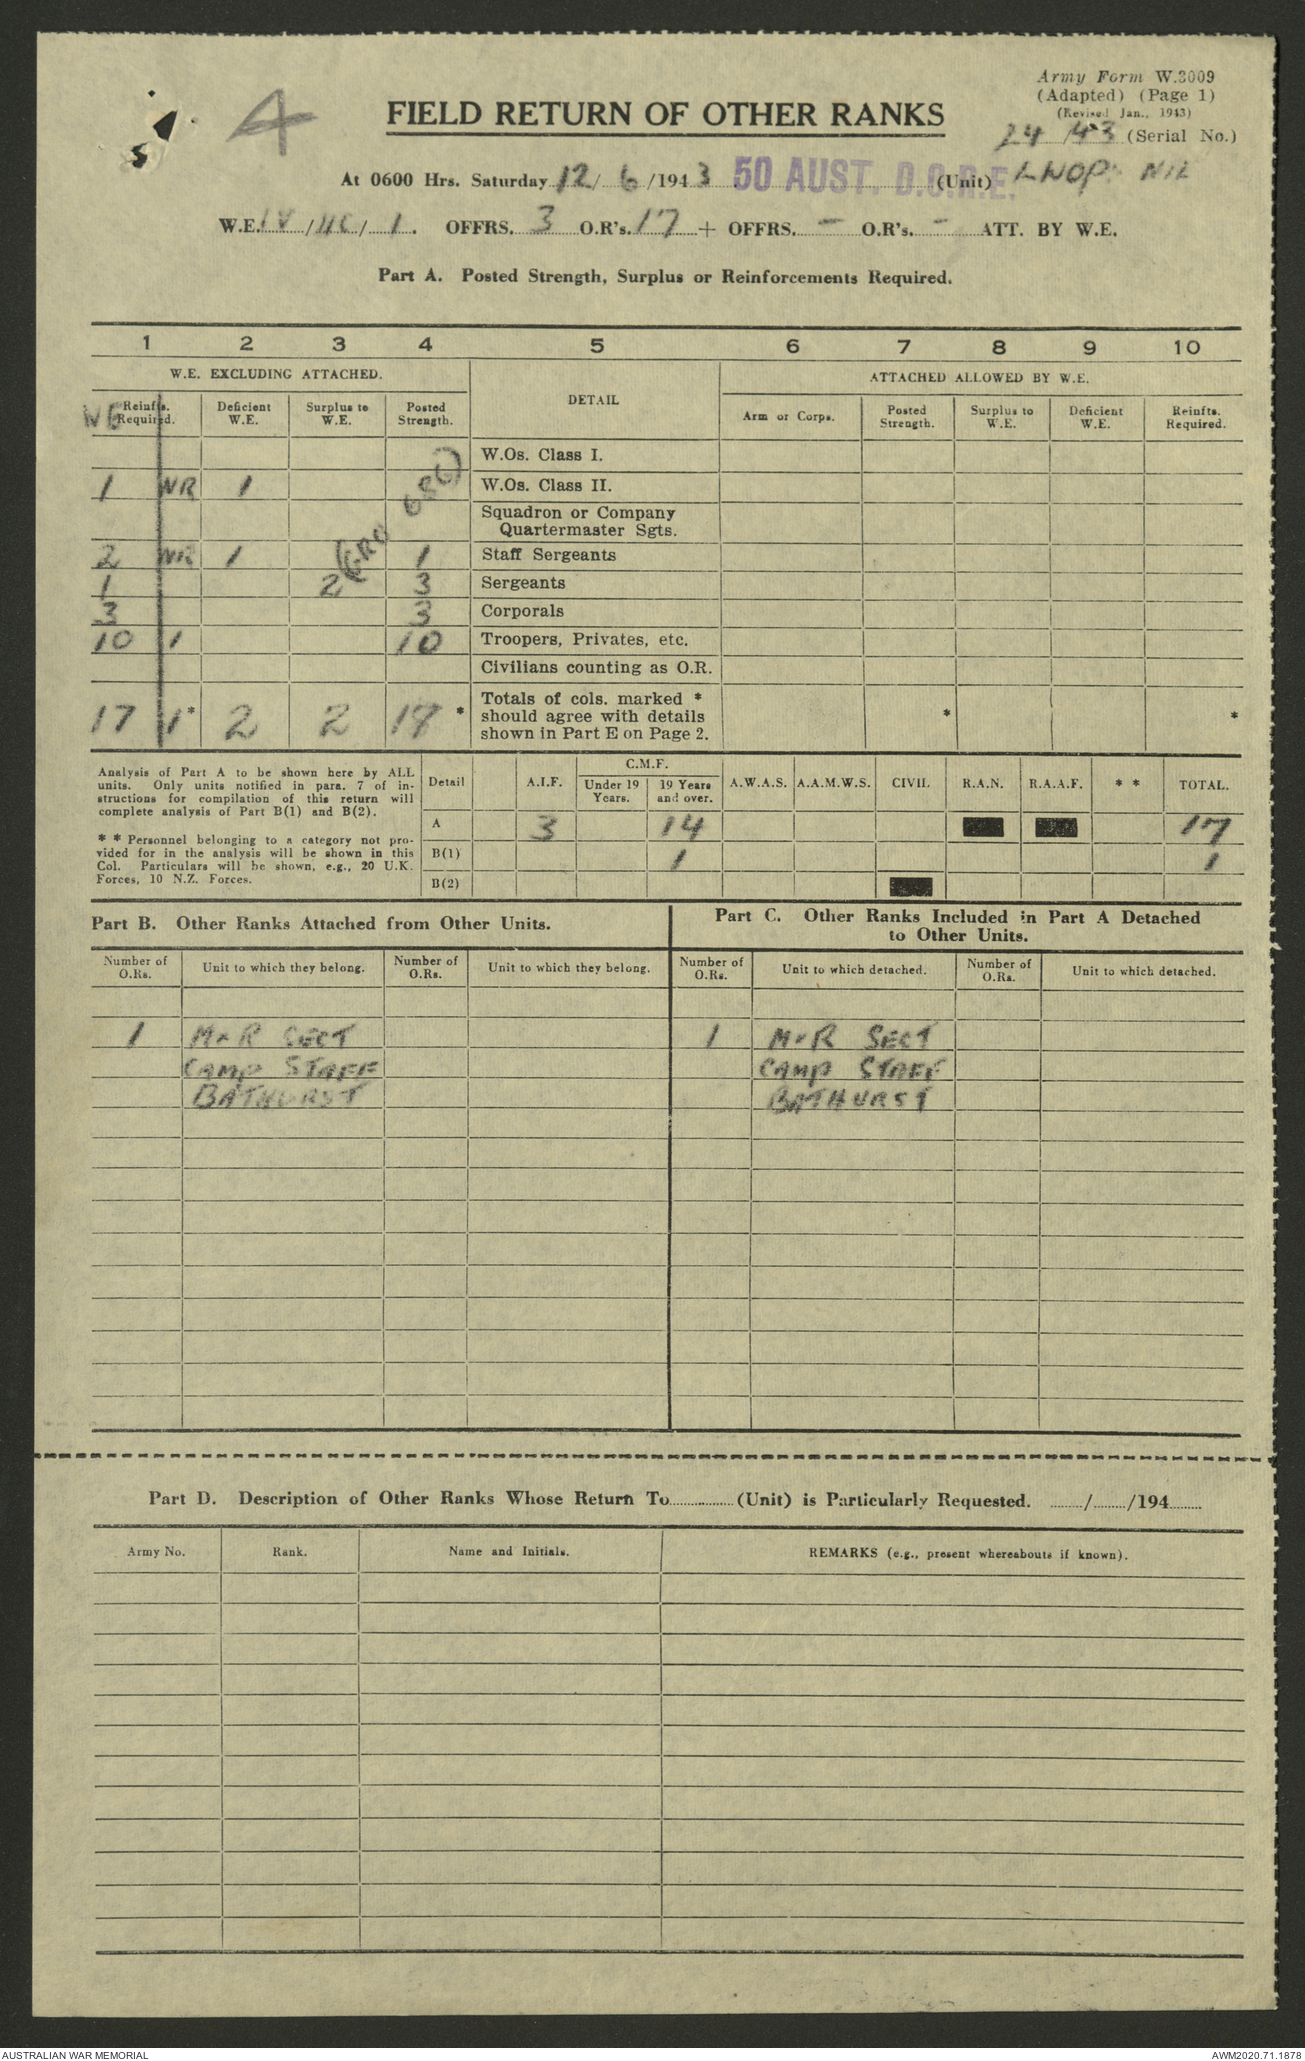 Army Form W.3009
(Adapted) (Page 1)
(Revised Jan., 1943)
A
FIELD RETURN OF OTHER RANKS
24/43 (Serial No.)
At 0600 Hrs. Saturday 12/6/1943 50 AUST. D.C.R.E. (Unit) LWOP: NIL
W.E. IV/11C/1. OFFRS. 3 O.R's. 17 + OFFRS. - O.R's. - ATT. BY W.E.
Part A. Posted Strength, Surplus or Reinforcements Required.
1 2 3 4 5 6 7 8 9 10
W.E. EXCLUDING ATTACHED. DETAIL ATTACHED ALLOWED BY W.E.
WE Reinfts. Required. Deficient W.E. Surplus to W.E. Posted Strength. Arm or Corps. Posted Strength. Surplus to W.E. Deficient W.E. Reinfts. Required.
W.Os. Class I.
1 NR 1 W.Os. Class II.
Squadron or Company
Quartermaster Sgts.
2 NR 1 1 Staff Sergeants
1 2 3 Sergeants
3 3 Corporals
10 1 10 Troopers, Privates, etc.
Civilians counting as O.R.
17 1* 2 2 17 * Totals of cols. marked *
should agree with details * *
shown in Part E on Page 2.
Analysis of Part A to be shown here by ALL
units. Only units notified in para. 7 of in-
structions for compilation of this return will
complete analysis of Part B(1) and B(2).
* * Personnel belonging to a category not pro-
vided for in the analysis will be shown in this
Col. Particulars will be shown, e.g., 20 U.K.
Forces, 10 N.Z. Forces.
Detail A.I.F. C.M.F. Under 19 Years. 19 Years and over. A.W.A.S. A.A.M.W.S. CIVIL R.A.N. R.A.A.F. * * TOTAL.
A 3 14 17
B(1) 1 1
B(2)
Part B. Other Ranks Attached from Other Units.
Part C. Other Ranks Included in Part A Detached
to Other Units.
Number of O.Rs. Unit to which they belong. Number of O.Rs. Unit to which they belong. Number of O.Rs. Unit to which detached. Number of O.Rs. Unit to which detached.
1 M+R SECT 1 M+R SECT
CAMP STAFF CAMP STAFF
BATHURST BATHURST
Part D. Description of Other Ranks Whose Return To (Unit) is Particularly Requested. / /194
Army No. Rank. Name and Initials. REMARKS (e.g., present whereabouts if known).
AUSTRALIAN WAR MEMORIAL
AWM2020.71.1878